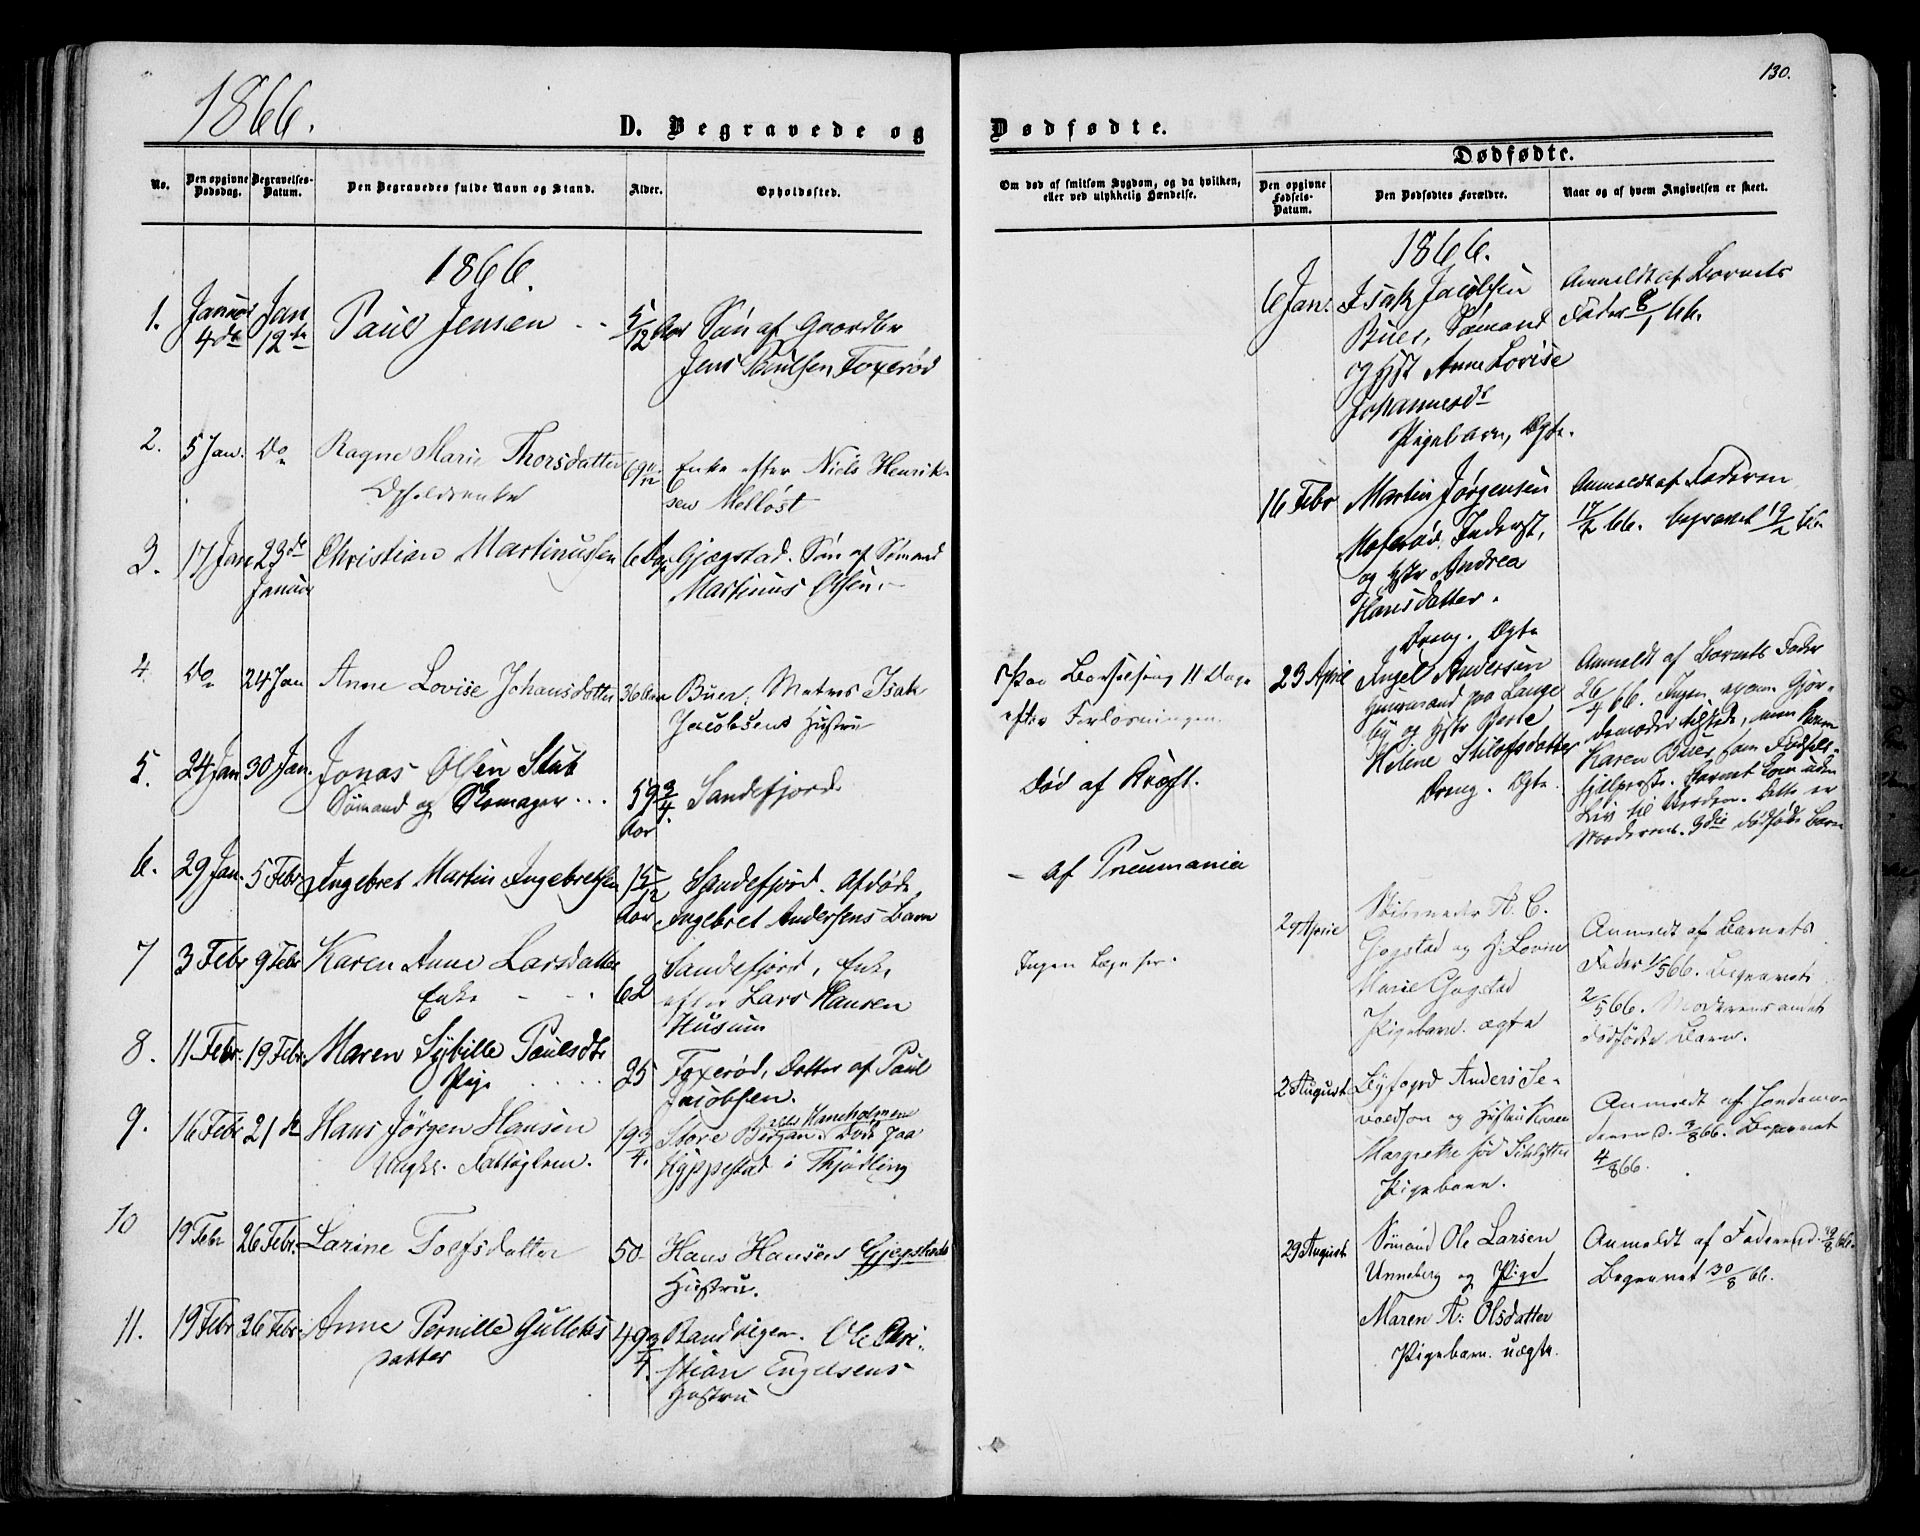 130.
1866.
D. Begravede og Dødfødte.
Dødfødte.
No.
Den opgivne Dødsdag.
Begravelses-Datum.
Den Begravedes fulde Navn og Stand.
Alder.
Opholdssted.
Om død af smitsom Sygdom, og da hvilken,
eller ved ulykkelig Hændelse.
Den opgivne Fødsels-Datum.
Den Dødfødtes Forældre.
Naar og af hvem Angivelsen er skeet.
1866.
1. Januar 4de Jan 12te Paul Jensen 5/12 Aar Søn af Gaardbr
Jens Paulsen Foxerød
2. 5 Jan. Do Ragne Marie Thorsdatter 69 Enke efter Niels Henrik-
sen Melløst
3. 17 Jan 23de Januar Christian Martinussen 6 Dage Gjogstad. Søn af Sømand
Martinus Olsen.
4 Do 24 Jan Anne Lovise Johansdatter 36 Aar Buer. Matros Isak
Jacobsens Hustru
5. 24 Jan 30 Jan. Jonas Olsen Stub
Sømand og Skomager 59 3/4 Aar Sandefjord
6. 29 Jan. 5 Febr Ingebret Martin Ingebretsen 15/12 Aar Sandefjord. Afdøde
Ingebret Andersens Barn
7 3 Febr 9 Febr Karen Anne Larsdatter
Enke 62 Sandefjord, Enke
efter Lars Hansen
Husum
8. 11 Febr. 19 Febr. Maren Sybille Paulsdtr
Pige 25 Foxerød, Datter af Paul
Jacobsen.
9. 16 Febr 21de Hans Jørgen Hansen
Ungk. 19 3/4. Store Bergan. Død paa
i Thjødling
10 19 Febr 26 Febr. Larine Tolfsdatter 50. Hans Hansen Gjogstads
Hustru.
11. 19 Febr 26 Febr. Anne Pernille Gulleks
datter 49 3/4. Ranvigen. Ole Chri-
stian Engelsens
Hustru
Paa Barselseng 11 Dage
efter Forløsningen.
Død af Kræft.
- af Pneumania
Ingen Læge
1866.
6 Jan. Isak Jacobsen
Buer, Sømand
og Hst Anne Lovise
Johannesdr
Pigebarn, Ægte.
Anmeldt af Barnets
Fader 8/1 66.
16 Febr Martin Jørgensen
Moserød, Inderst,
og Hstr Andrea
Hansdatter.
Dreng. Ægte
Anmeldt af Faderen
17/2 66. begravet 19/2 66
23 April Engel Andersen
Huusmand paa Lange
by og Hstr Berte
Helene Stilofsdatter
Dreng. Ægte.
Anmeldt af Barnets Fader
26/4 66. Ingen exam. Gjor-
demoder tilstede, men
Karen Buer, som Fødsels-
hjælperske. Barnet kom uden
Liv til Verden. Dette er
Moderens 3die dødfødte Barn
29 April Skibsreder A. C.
Gogstad og H. Lovise
Marie Gogstad
Pigebarn. ægte
Anmeldt af Barnets
Fader 1/5 66. Begravet
2/5 66. Moderens andet
dødfødte Barn.
2 August Byfoged Anders Se-
valdson og Hustru Karen
Margrethe fød Schlytter
Pigebarn.
Anmeldt af Jordemo-
deren d. 3/8 66. Begravet
4/8 66.
29 August Sømand Ole Larsen
Unneberg og Pige
Maren A: Olsdatter
Pigebarn. uægte.
Anmeldt af Faderen d. 29/8 66.
Begravet 30/8 66.